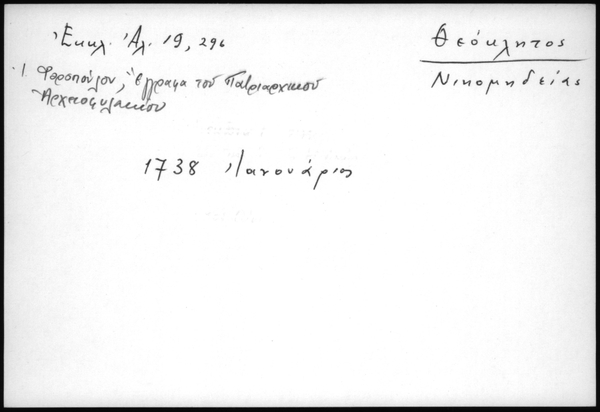 Ἐκκλ. Ἀλ. 19, 296
Θεόκλητος
Νικομηδείας
Ἰ. Φωροπούλου, Ἔγγραφα τοῦ Πατριαρχικοῦ
Ἀρχειοφυλακείου
1738 Ἰανουάριος